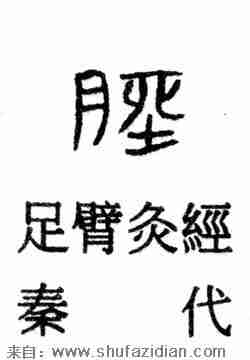 脛
足臂灸經
秦代
来自：www.shufazidian.com